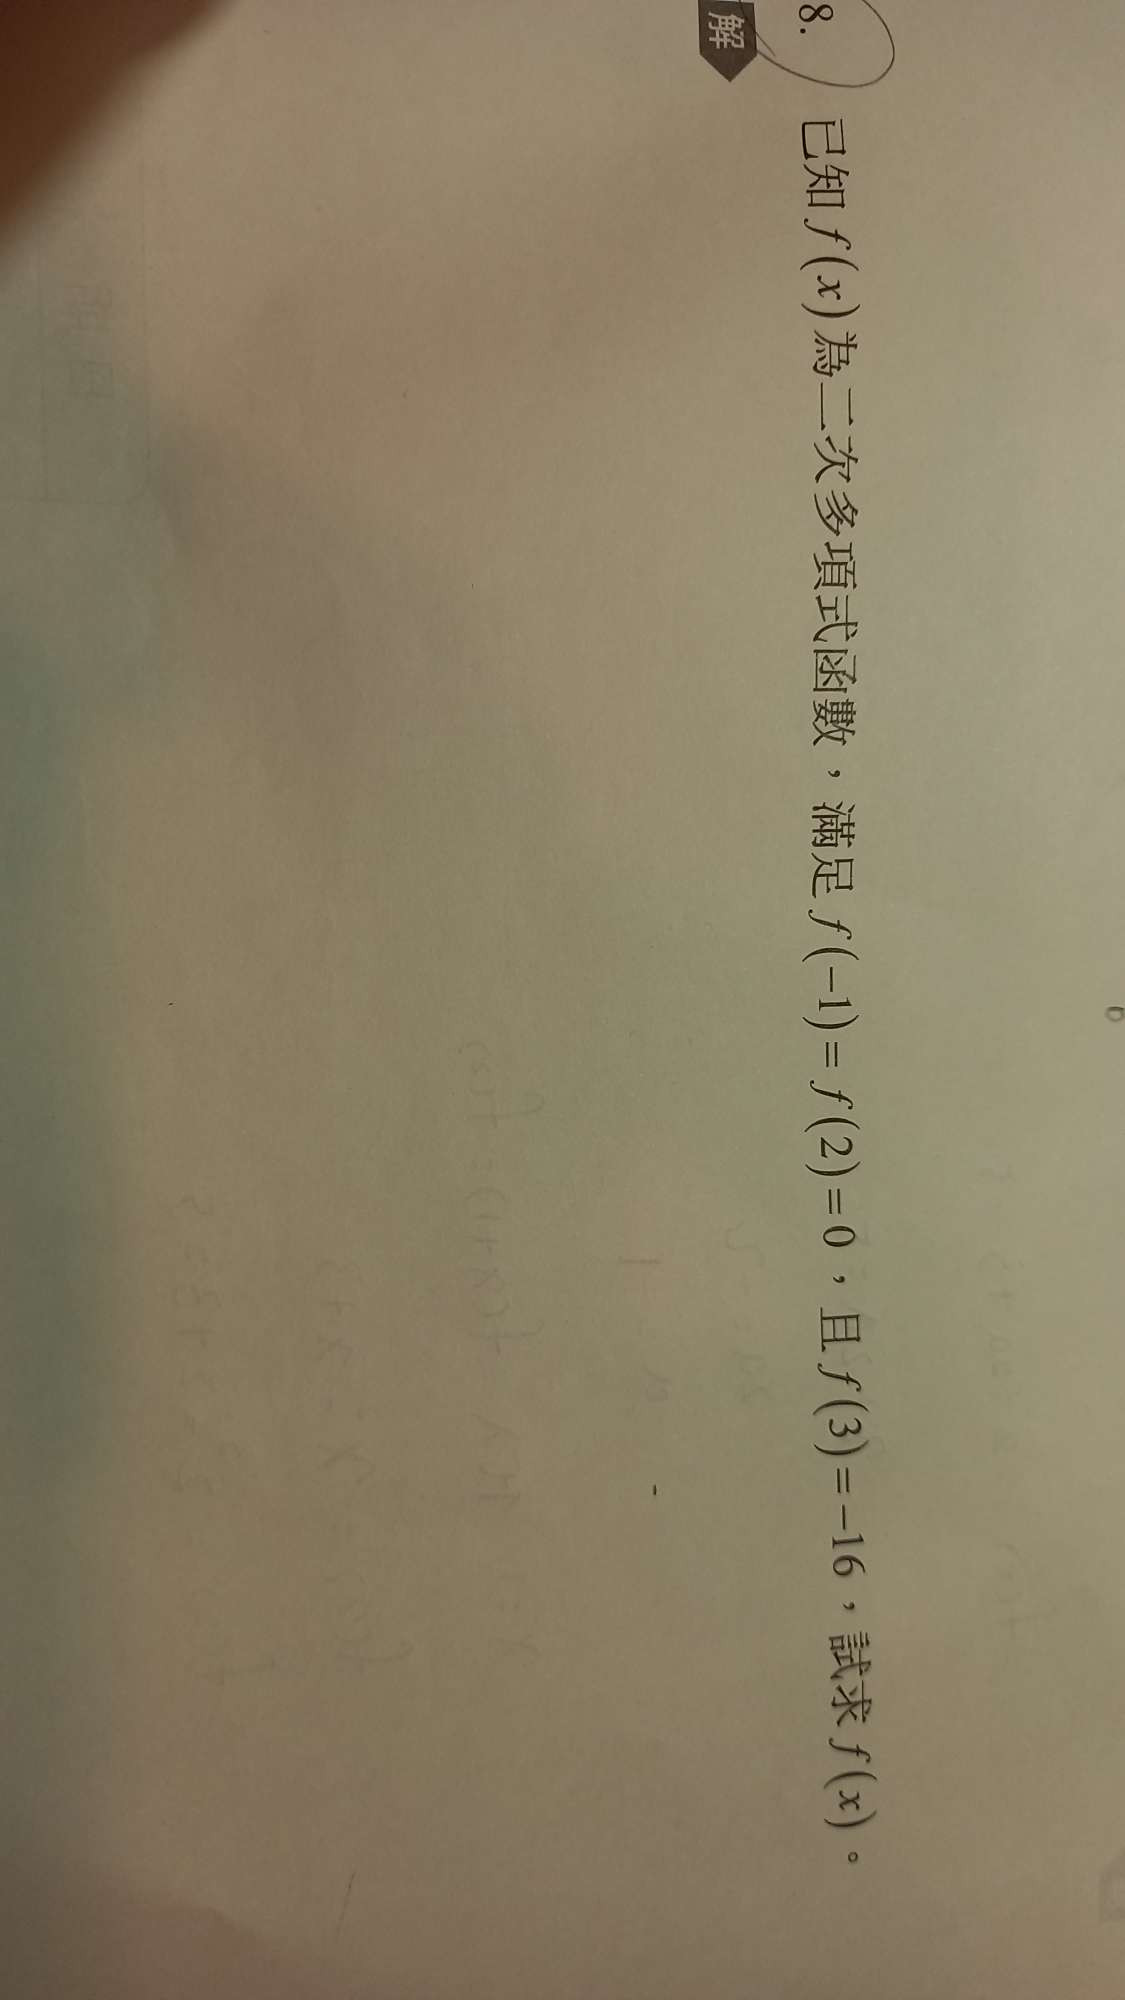 8. 已知 f(x) 為二次多項式函數，滿足 f(−1)=f(2)=0，且 f(3)=−16，試求 f(x)。
解